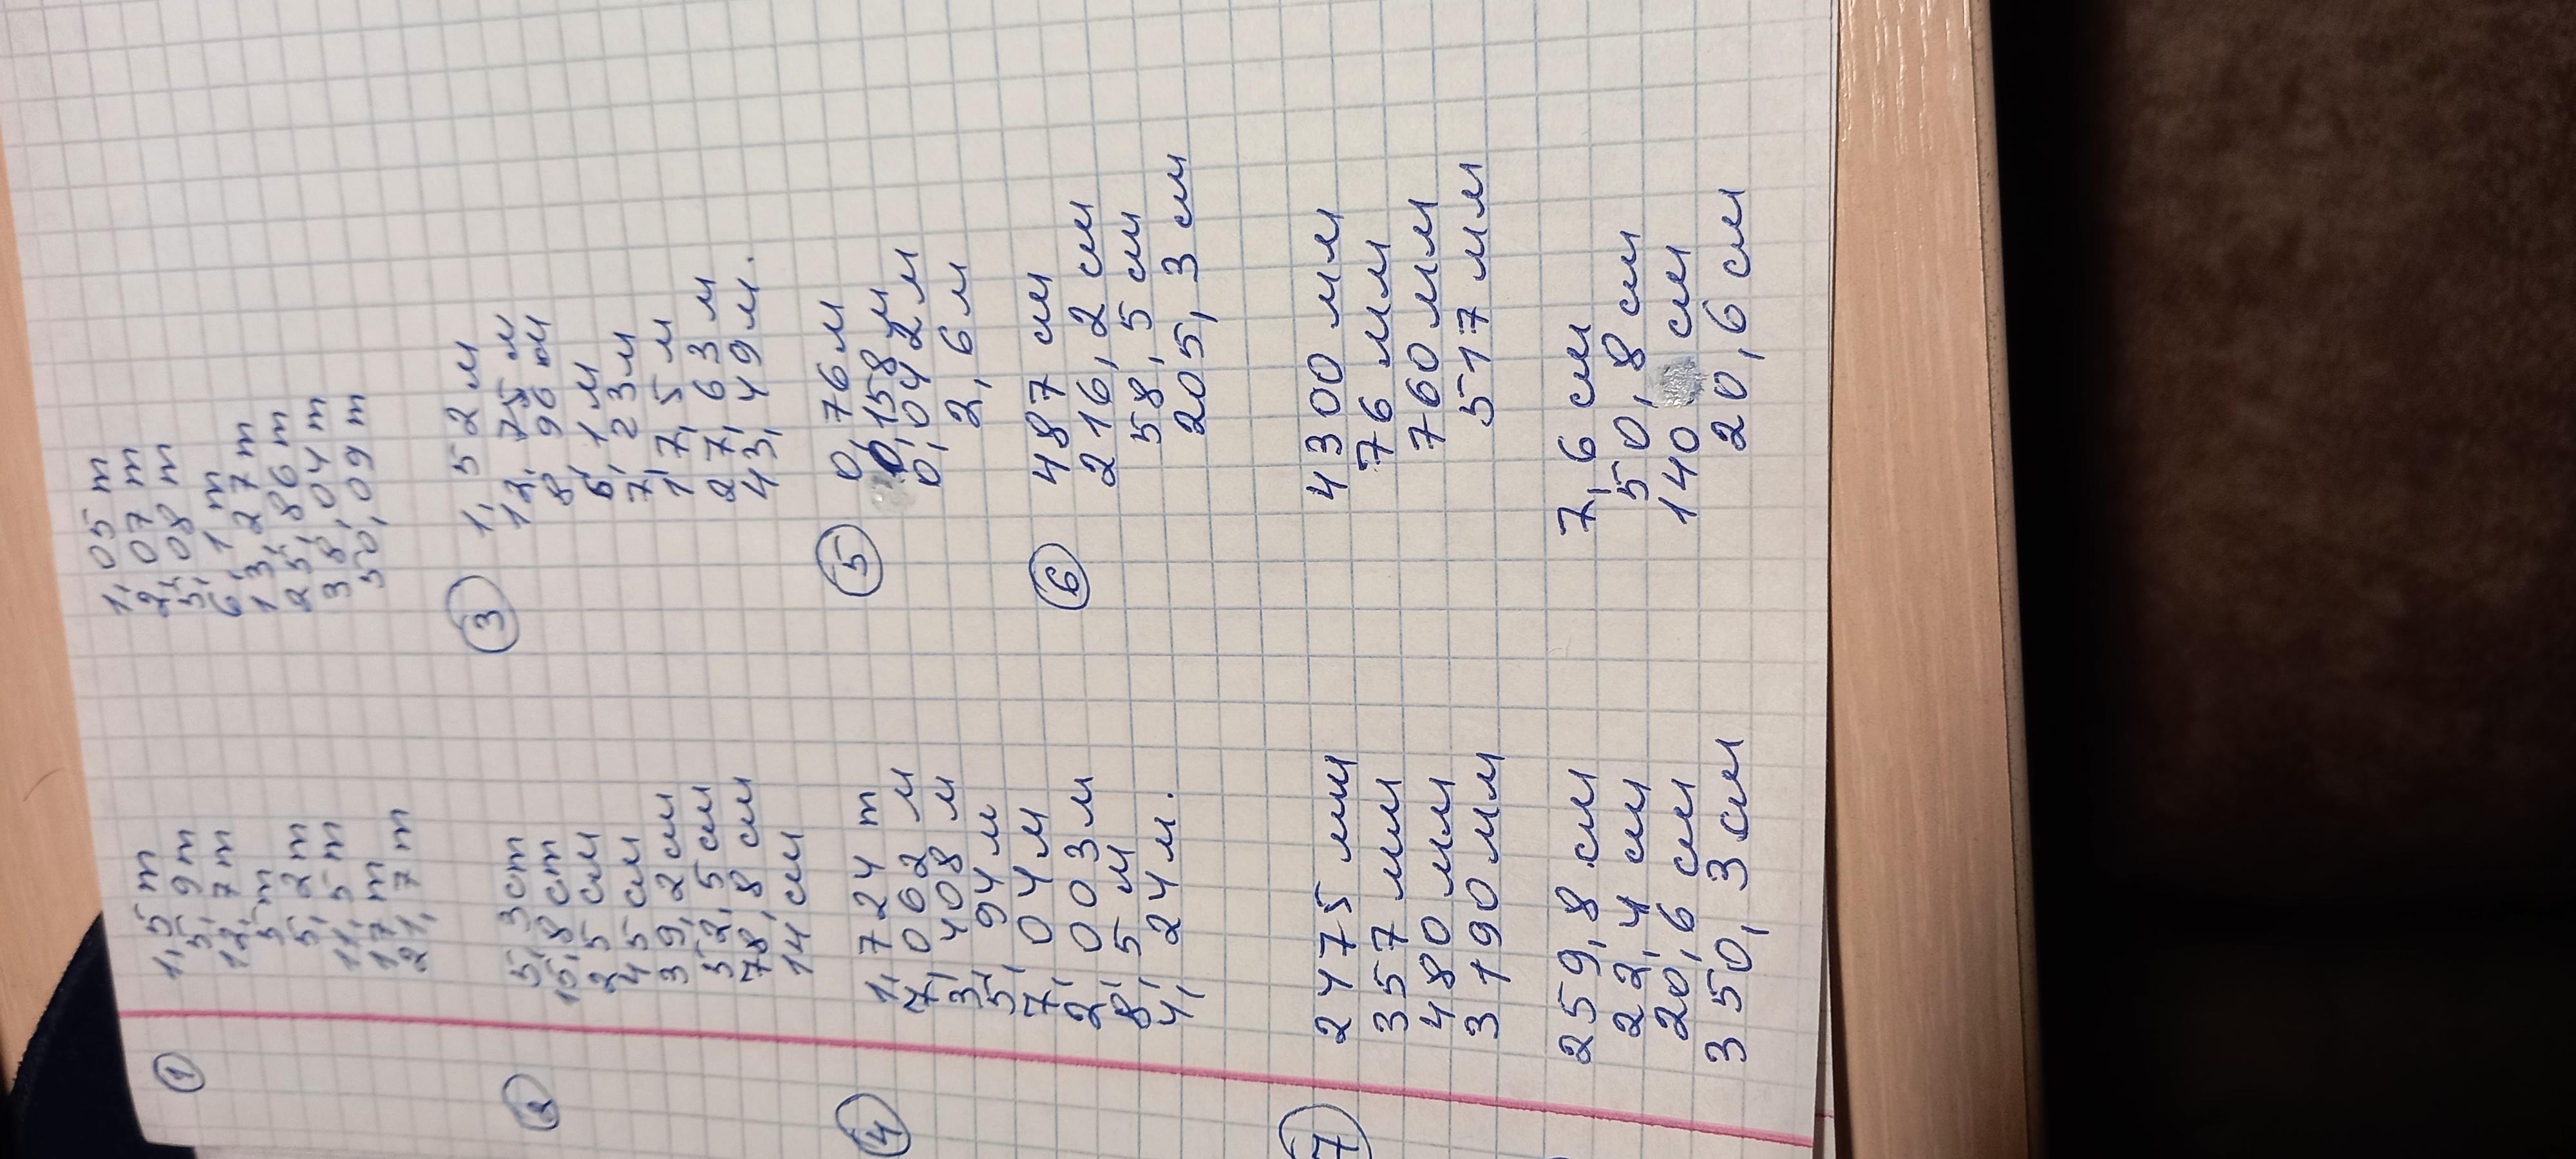 1
1,5 m
3,9 m
12,7 m
5 m
5,2 m
11,5 m
17 m
21,7 m
1,05 m
2,07 m
5,08 m
6,1 m
13,27 m
25,86 m
38,04 m
50,09 m
2
5,3 cm
15,8 cm
25 см
45 см
39,2 см
52,5 см
78,8 см
14 см
3
1,52 м
12,75 м
8,96 м
6,1 м
7,23 м
17,5 м
27,63 м
43,49 м.
4
1,724 m
7,062 м
3,408 м
5,94 м
7,04 м
2,003 м
8,5 м
4,24 м.
5
0,76 м
0,158 м
0,042 м
2,6 м
6
487 см
216,2 см
58,5 см
205,3 см
7
2475 мм
357 мм
480 мм
3190 мм
4300 мм
76 мм
760 мм
517 мм
259,8 см
22,4 см
20,6 см
350,3 см
7,6 см
50,8 см
140 см
20,6 см